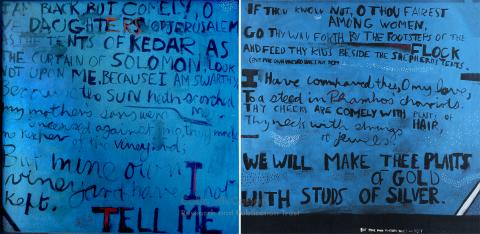 I AM BLACK, BUT COMELY, O
YE DAUGHTERS OF JERUSALEM
AS THE TENTS OF KEDAR AS
THE CURTAIN OF SOLOMON. LOOK
NOT UPON ME, BECAUSE I AM SWARTHY
Because the SUN hath scorched
my mothers sons were
incensed against me, they made
me keeper of the vineyards;
But mine own
vineyard have I not
kept.
TELL ME
IF THOU KNOW NOT, O THOU FAIREST
AMONG WOMEN,
GO THY WAY FORTH BY THE FOOTSTEPS OF THE
FLOCK
AND FEED THY KIDS BESIDE THE SHEPHERDS' TENTS.
I Have compared thee, O my love,
To a steed in Pharaohs chariots.
THY CHEEKS ARE COMELY WITH PLAITS OF
HAIR,
Thy neck with strings
of jewels.
WE WILL MAKE THEE PLAITS
of GOLD
WITH STUDS OF SILVER.